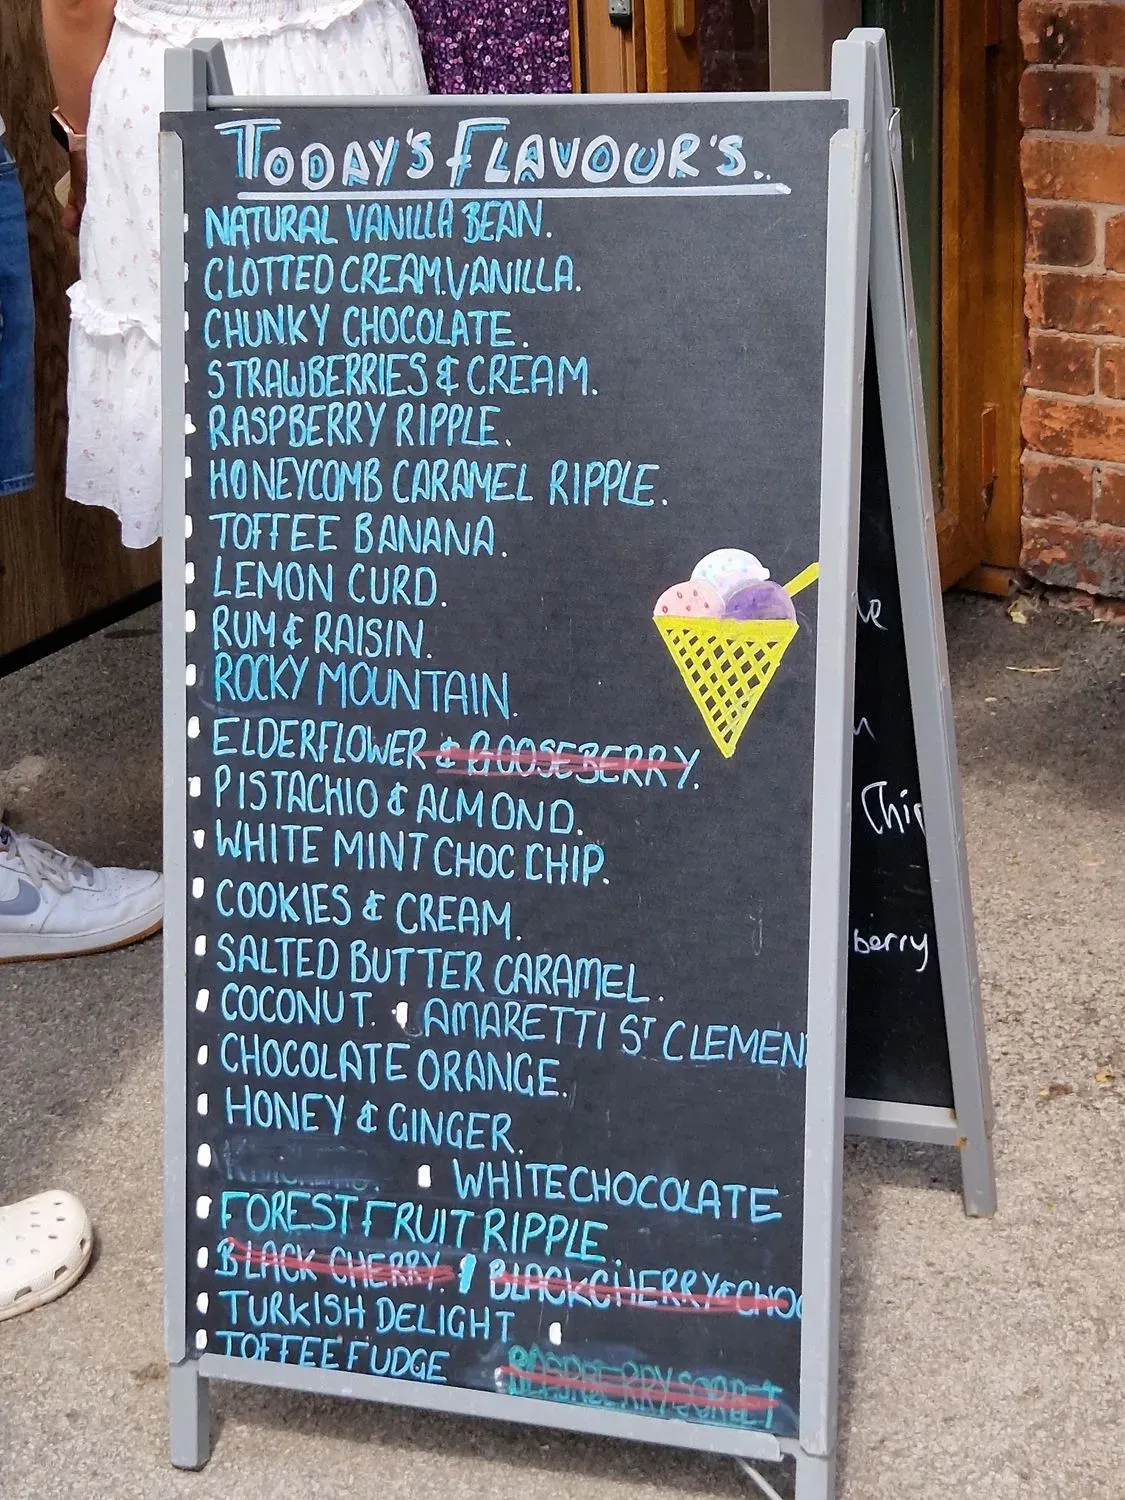 TODAY'S FLAVOUR'S..
NATURAL VANILLA BEAN.
CLOTTED CREAM.VANILLA.
CHUNKY CHOCOLATE.
STRAWBERRIES & CREAM.
RASPBERRY RIPPLE.
HONEYCOMB CARAMEL RIPPLE.
TOFFEE BANANA.
LEMON CURD.
RUM & RAISIN.
ROCKY MOUNTAIN.
ELDERFLOWER & GOOSEBERRY.
PISTACHIO & ALMOND.
WHITE MINT CHOC CHIP.
COOKIES & CREAM.
SALTED BUTTER CARAMEL.
COCONUT. AMARETTI ST CLEMEN
CHOCOLATE ORANGE.
HONEY & GINGER.
WHITE CHOCOLATE
FOREST FRUIT RIPPLE.
BLACK CHERRY. BLACKCHERRY & CHOC
TURKISH DELIGHT
TOFFEE FUDGE RASPBERRY SORBET
Chip
berry